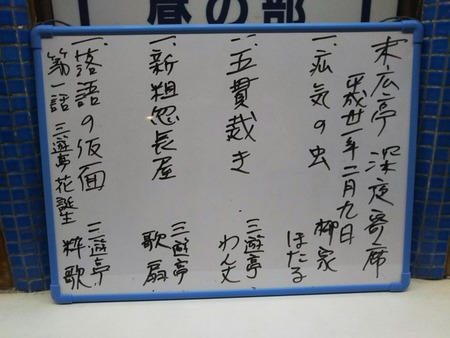 昼の部
末広亭 深夜寄席
平成卅一年二月九日
一、疝気の虫 柳家ほたる
一、五貫裁き 三遊亭わん丈
一、新粗忽長屋 三遊亭歌扇
一、落語の仮面 三遊亭粋歌
第一話 三遊亭花誕生